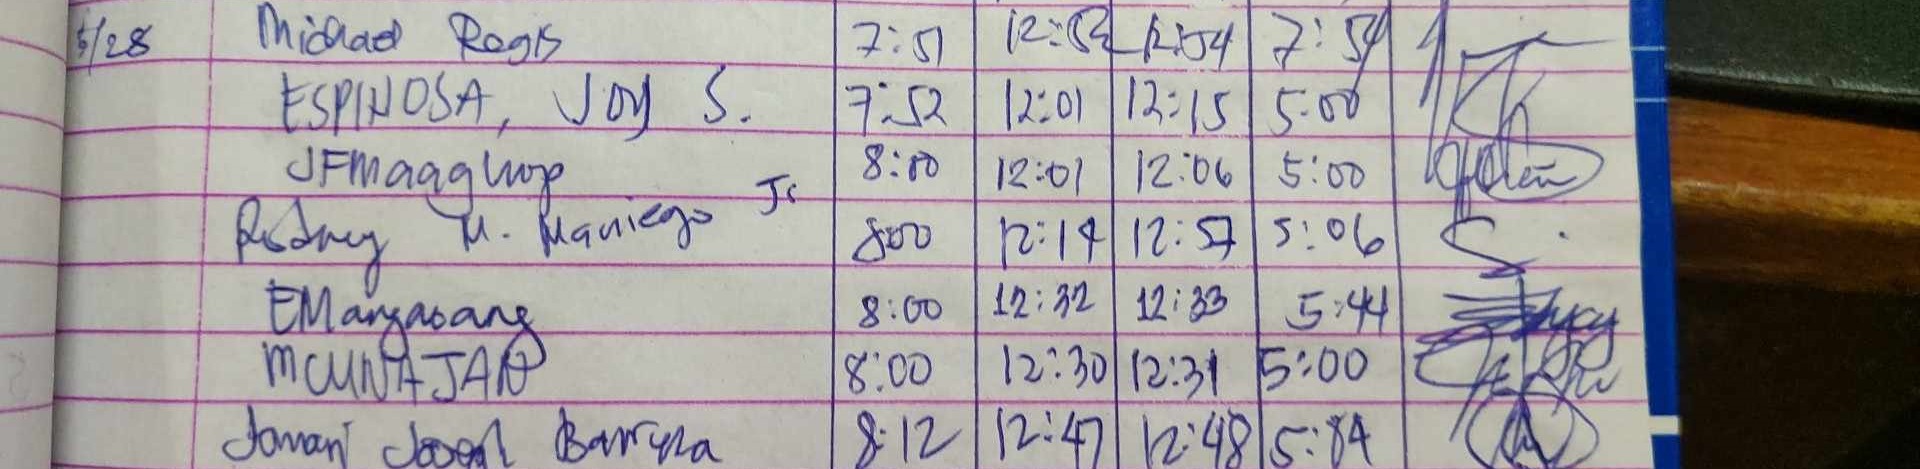 5/28 Michael Regis 7:51 12:53 12:54 7:54
ESPINOSA, JOY S. 7:52 12:01 12:15 5:00
JFMaaghop 8:00 12:01 12:06 5:00
Rodney M. Maniego Jr 8:00 12:14 12:57 5:06
EMangasang 8:00 12:32 12:33 5:44
MCUNAJAN 8:00 12:30 12:31 5:00
8:12 12:47 12:48